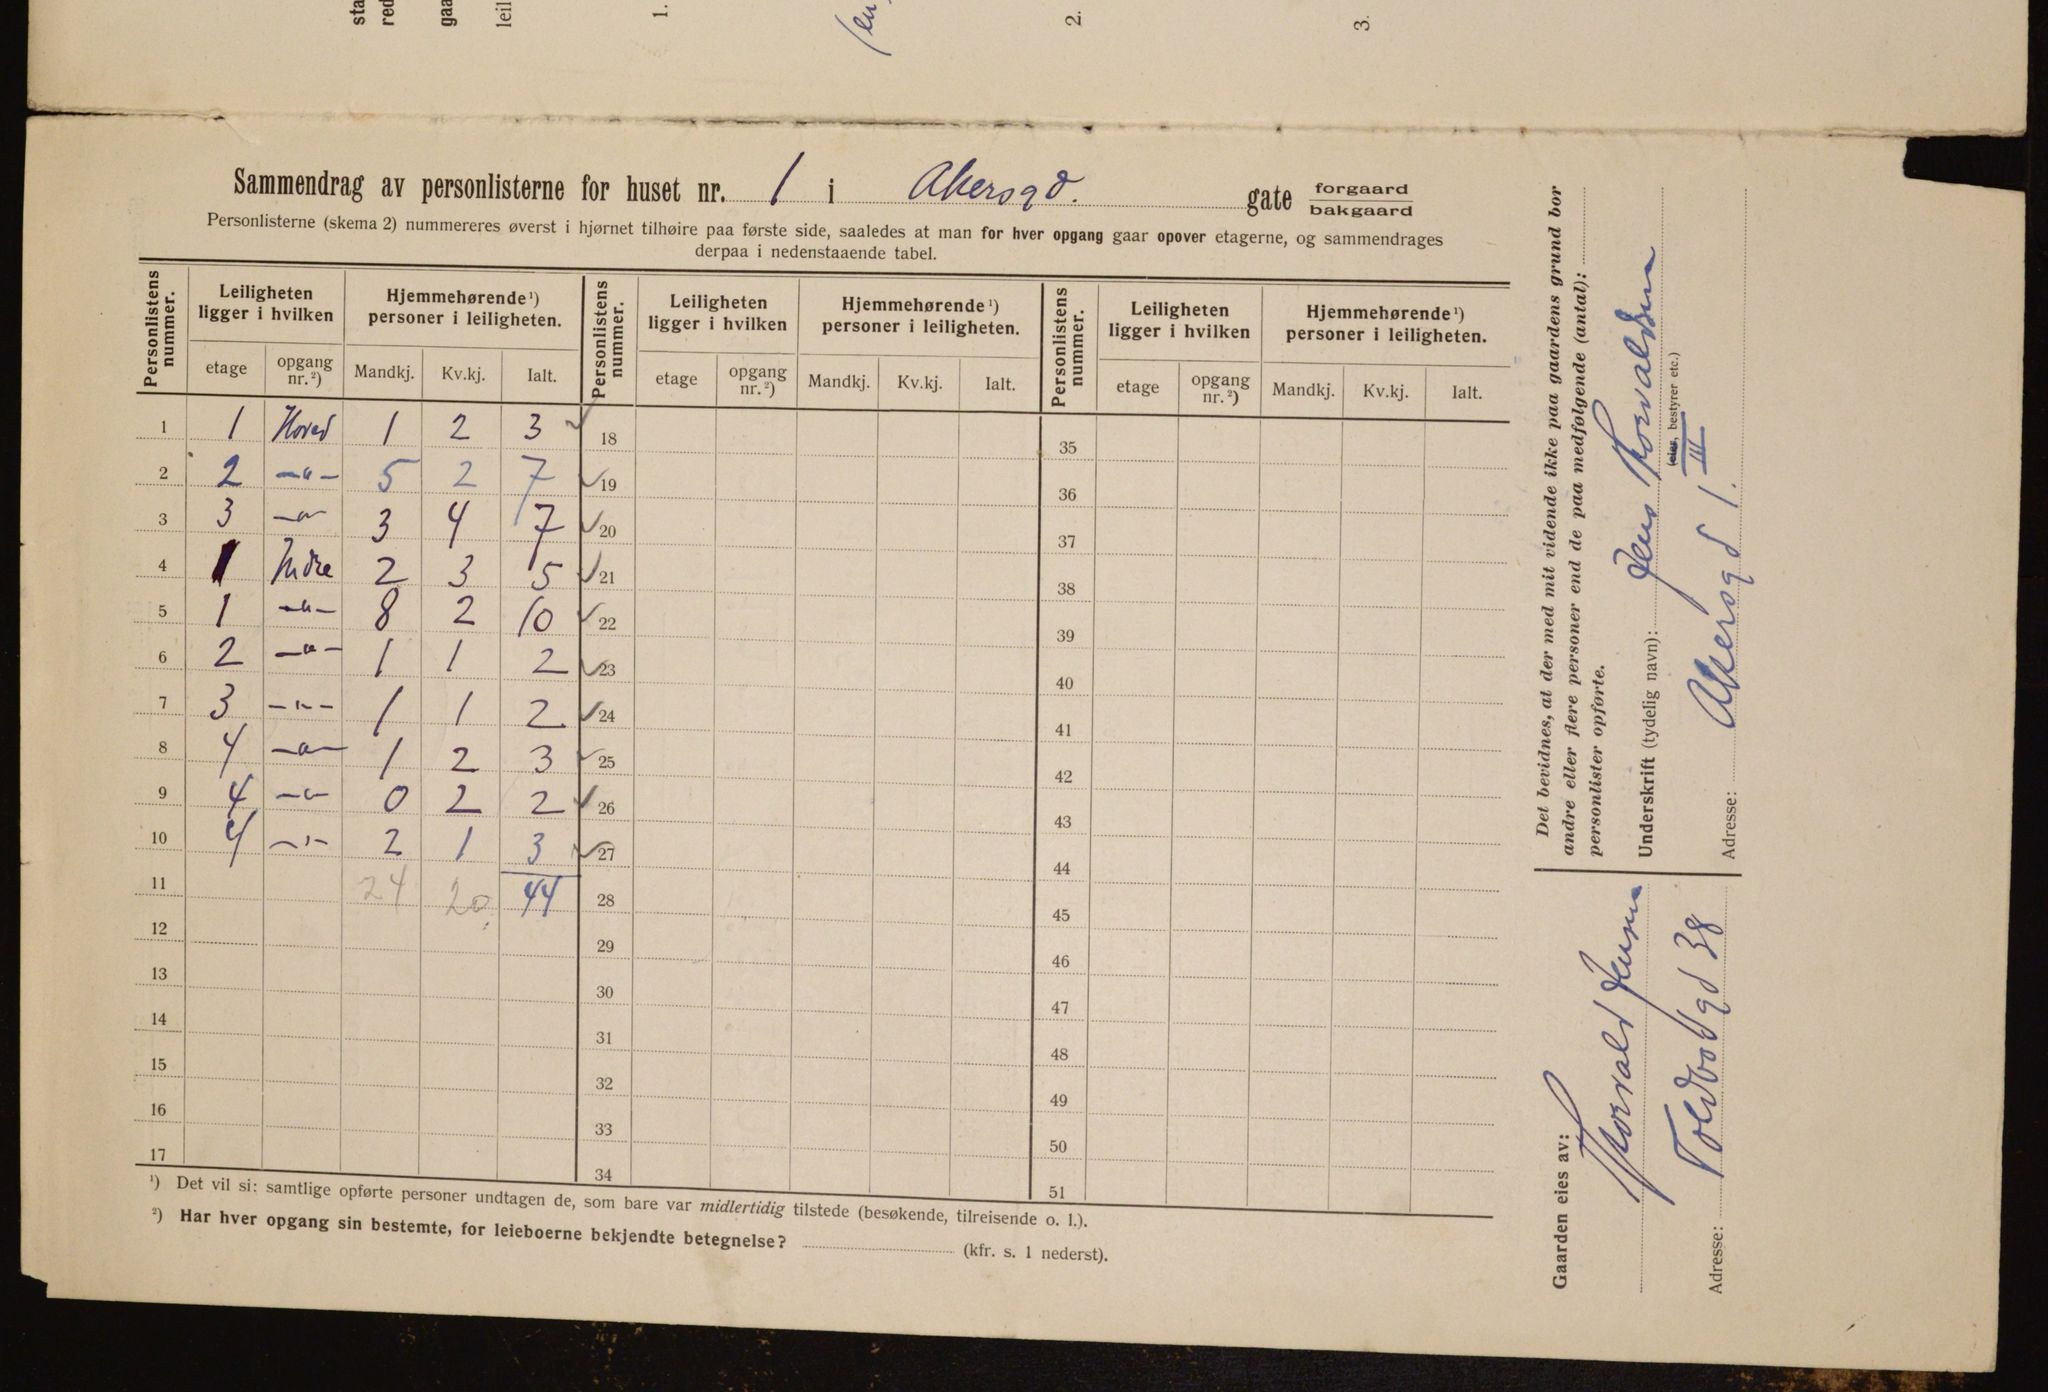 sta
red
gaa
leil
1.
(en
2.
3.
Sammendrag av personlisterne for huset nr. 1 i Akersgd. gate forgaard
bakgaard
Personlisterne (skema 2) nummereres øverst i hjørnet tilhøire paa første side, saaledes at man for hver opgang gaar opover etagerne, og sammendrages
derpaa i nedenstaaende tabel.
Personlistens nummer. Leiligheten ligger i hvilken Hjemmehørende ¹) personer i leiligheten. Personlistens nummer. Leiligheten ligger i hvilken Hjemmehørende ¹) personer i leiligheten. Personlistens nummer. Leiligheten ligger i hvilken Hjemmehørende ¹) personer i leiligheten.
etage opgang nr. ²) Mandkj. Kv.kj. Ialt. etage opgang nr. ²) Mandkj. Kv.kj. Ialt. etage opgang nr. ²) Mandkj. Kv.kj. Ialt.
1 1 Hoved 1 2 3 ✓ 18 35
2 2 —"— 5 2 7 ✓ 19 36
3 3 —"— 3 4 7 ✓ 20 37
4 1 Indre 2 3 5 ✓ 21 38
5 1 —"— 8 2 10 ✓ 22 39
6 2 —"— 1 1 2 ✓ 23 40
7 3 —"— 1 1 2 ✓ 24 41
8 4 —"— 1 2 3 ✓ 25 42
9 4 —"— 0 2 2 ✓ 26 43
10 4 —"— 2 1 3 ✓ 27 44
11 24 20 44 28 45
12 29 46
13 30 47
14 31 48
15 32 49
16 33 50
17 34 51
¹) Det vil si: samtlige opførte personer undtagen de, som bare var midlertidig tilstede (besøkende, tilreisende o. l.).
²) Har hver opgang sin bestemte, for leieboerne bekjendte betegnelse? (kfr. s. 1 nederst).
Det bevidnes, at der med mit vidende ikke paa gaardens grund bor
andre eller flere personer end de paa medfølgende (antal):
personlister opførte.
Underskrift (tydelig navn): Jens Thorvaldsen
(eier, bestyrer etc.)
III
Adresse: Akersgd 1.
Gaarden eies av:
Thorvald Jensen
Adresse: Toldbodgd 38